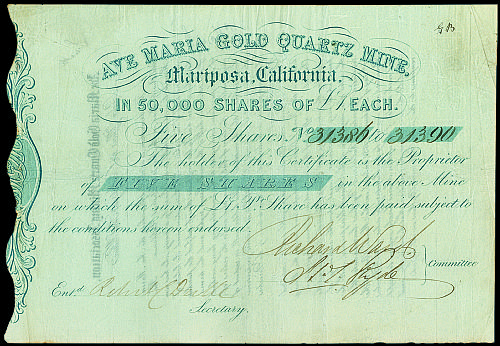 AVE MARIA GOLD QUARTZ MINE.
Mariposa, California,
IN 50,000 SHARES OF £1, EACH.
Five Shares No. 31386 to 31390
The holder of this Certificate is the Proprietor
of FIVE SHARES in the above Mine
on which the sum of £1 Pr. Share has been paid subject to
the conditions hereon endorsed.
Richard
Committee
Entd. Robert
Secretary.